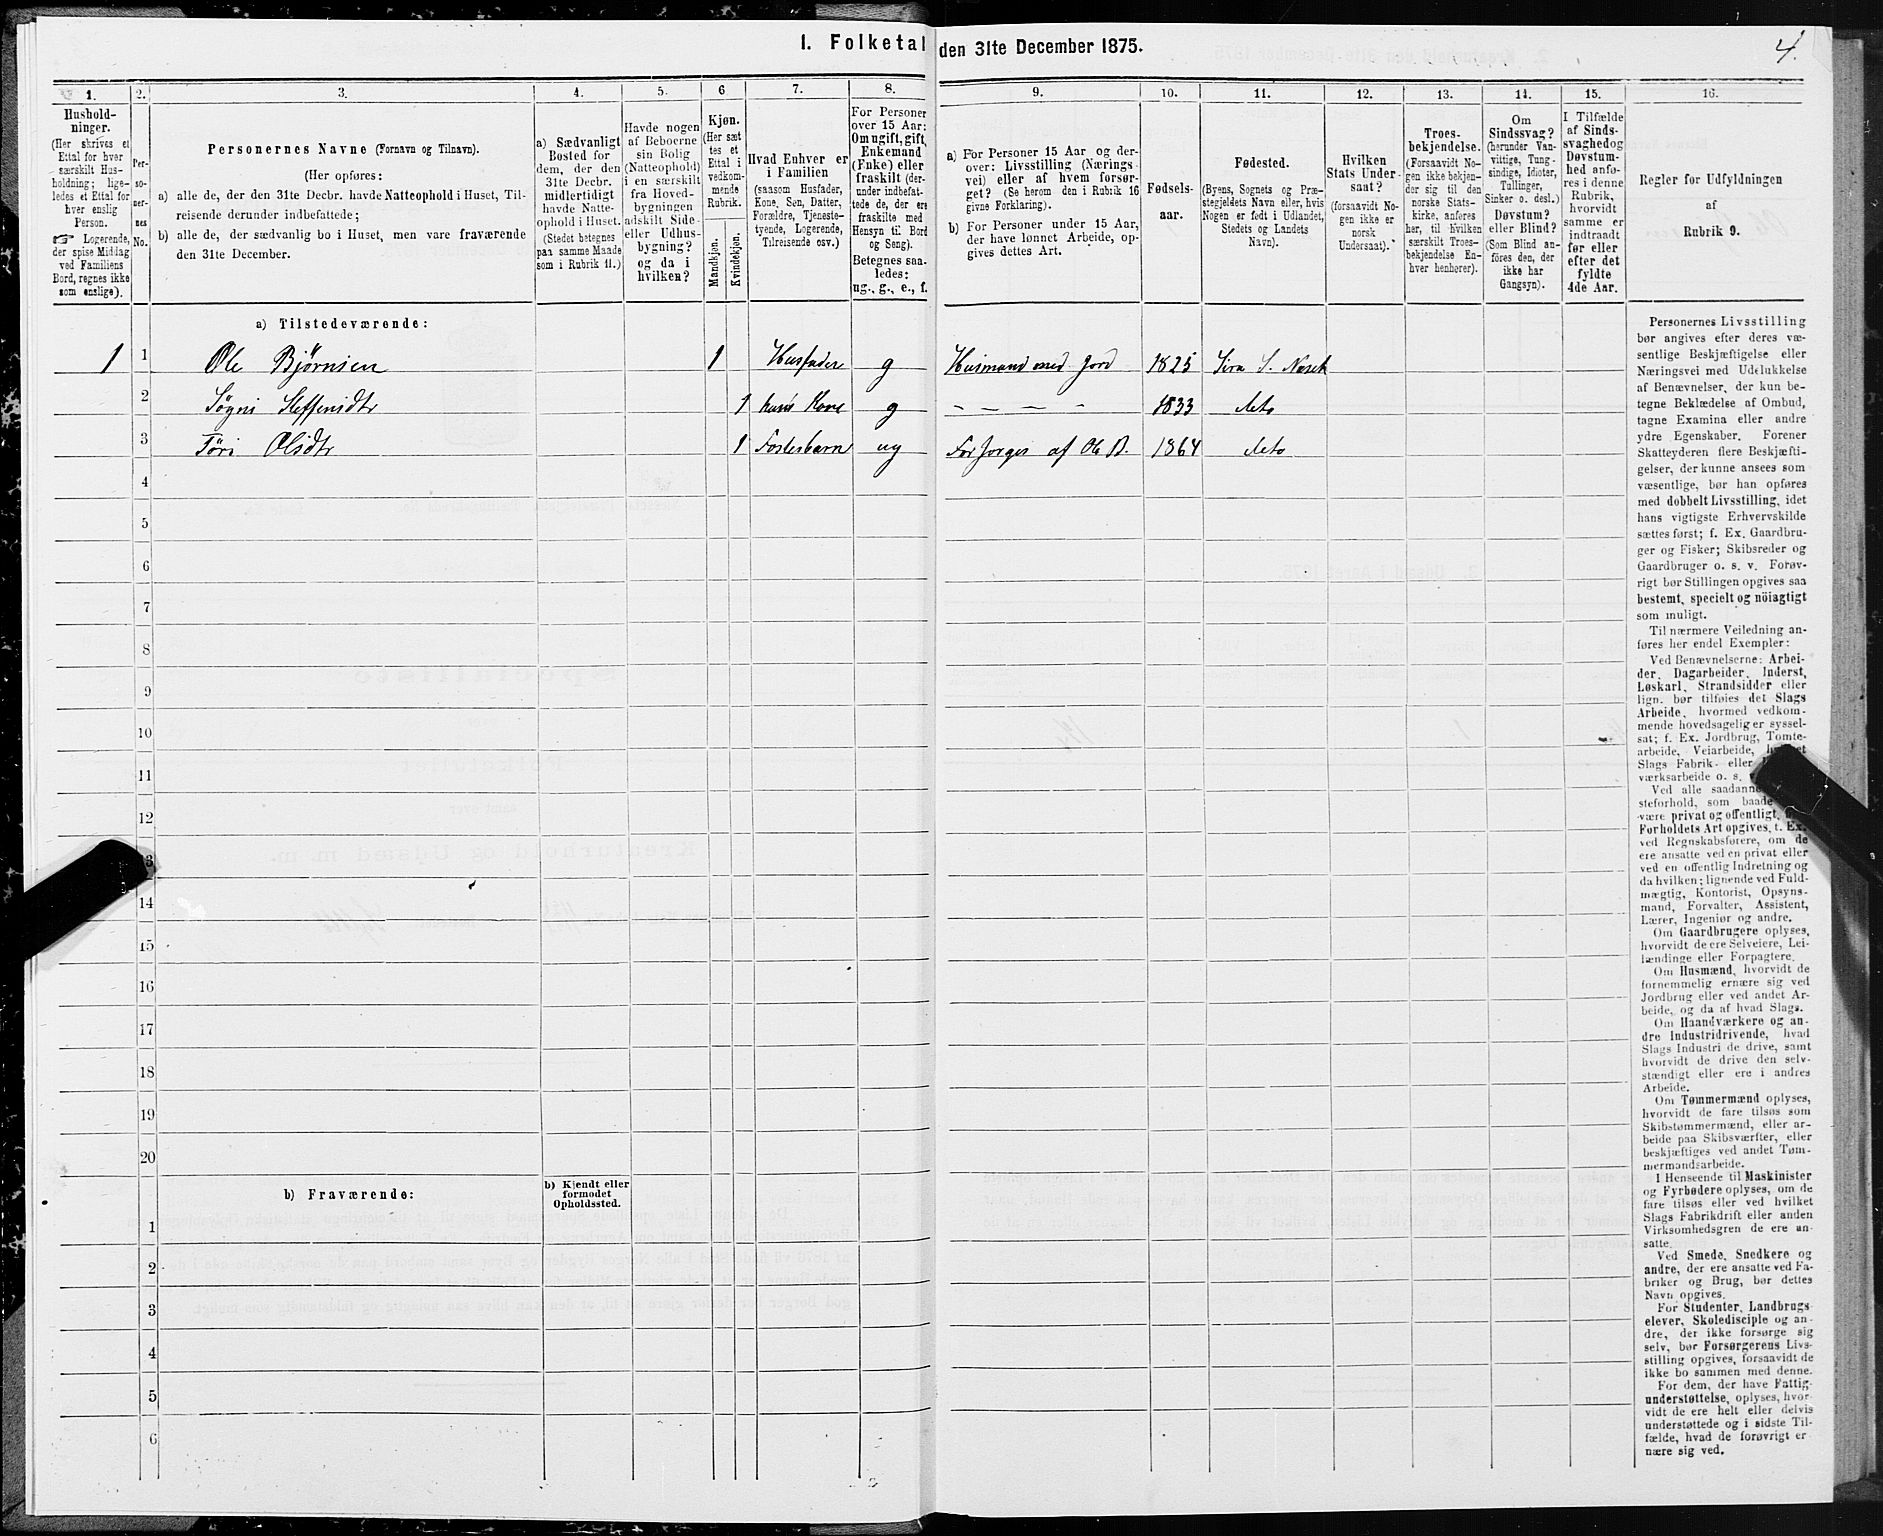 1. Folketal den 31te December 1875.
4.
1.
2.
3.
4.
5.
6
7.
8.
9.
10.
11.
12.
13.
14.
15.
16.
Hushold-
ninger.
(Her skrives et
Ettal for hver
særskilt Hus-
holdning; lige-
ledes et Ettal for
hver enslig
Person.
☞ Logerende,
der spise Middag
ved Familiens
Bord, regnes ikke
som enslige).
Per-
so-
ner-
nes
No.
Personernes Navne (Fornavn og Tilnavn).
(Her opføres:
a) alle de, der den 31te Decbr. havde Natteophold i Huset, Til-
reisende derunder indbefattede;
b) alle de, der sædvanlig bo i Huset, men vare fraværende
den 31te December.
a) Sædvanligt
Bosted for
dem, der den
31te Decbr.
midlertidigt
havde Natte-
ophold i Huset.
(Stedet betegnes
paa samme Maade
som i Rubrik 11.)
Havde nogen
af Beboerne
sin Bolig
(Natteophold)
i en særskilt
fra Hoved-
bygningen
adskilt Side-
eller Udhus-
bygning?
og da i
hvilken?
Kjøn.
(Her sæt
tes et
Ettal i
vedkom-
mende
Rubrik.
Mandkjøn.
Kvindekjøn.
Hvad Enhver er
i Familien
(saasom Husfader,
Kone, Søn, Datter,
Forældre, Tjeneste-
tyende, Logerende,
Tilreisende osv.)
For Personer
over 15 Aar:
Om ugift, gift,
Enkemand
(Enke) eller
fraskilt (der-
under indbefat-
tede de, der ere
fraskilte med
Hensyn til Bord
og Seng).
Betegnes saa-
ledes:
ug., g., e., f.
a) For Personer 15 Aar og der-
over: Livsstilling (Nærings-
vei) eller af hvem forsør-
get? (Se herom den i Rubrik 16
givne Forklaring).
b) For Personer under 15 Aar,
der have lønnet Arbeide, op-
gives dettes Art.
Fødsels-
aar.
Fødested.
(Byens, Sognets og Præ-
stegjeldets Navn eller, hvis
Nogen er født i Udlandet,
Stedets og Landets
Navn).
Hvilken
Stats Under-
saat?
(forsaavidt No-
gen ikke er
norsk
Undersaat).
Troes-
bekjendelse.
(Forsaavidt No-
gen ikke bekjen-
der sig til den
norske Stats-
kirke, anføres
her, til hvilken
særskilt Troes-
bekjendelse En-
hver henhører).
Om
Sindssvag?
(herunder Van-
vittige, Tung-
sindige, Idioter,
Tullinger,
Sinker o. desl.)
Døvstum?
eller Blind?
(Som Blind an-
føres den, der
ikke har
Gangsyn).
I Tilfælde
af Sinds-
svaghedog
Døvstum-
hed anfø-
res i denne
Rubrik,
hvorvidt
samme er
indtraadt
før eller
efter det
fyldte
4de Aar.
Regler for Udfyldningen
af
Rubrik 9.
a) Tilstedeværende:
1 1 Ole Bjørnsen 1 Husfader g Husmand med Jord 1825 Sira S. Neset
2 Søgni Steffensdtr 1 hans Kone g - - - - 1833 deto
3 Tøri Olsdtr 1 Fosterbarn ug Forsorges af Ole B. 1864 deto
4
5
6
7
8
9
10
11
12
3
14
15
16
17
18
19
20
b) Fraværende:
b) Kjendt eller
formodet
Opholdssted.
1
2
3
4
5
6
Personernes Livsstilling
bør angives efter deres væ-
sentlige Beskjæftigelse eller
Næringsvei med Udelukkelse
af Benævnelser, der kun be-
tegne Beklædelse af Ombud,
tagne Examina eller andre
ydre Egenskaber. Forener
Skatteyderen flere Beskjæfti-
gelser, der kunne ansees som
væsentlige, bør han opføres
med dobbelt Livsstilling, idet
hans vigtigste Erhvervskilde
sættes først; f. Ex. Gaardbru-
ger og Fisker; Skibsreder og
Gaardbruger o. s. v. Forøv-
rigt bør Stillingen opgives saa
bestemt, specielt og nöiagtigt
som muligt.
Til nærmere Veiledning an-
føres her endel Exempler:
Ved Benævnelserne: Arbei-
der, Dagarbeider, Inderst,
Løskarl, Strandsidder eller
lign. bør tilføies det Slags
Arbeide, hvormed vedkom-
mende hovedsagelig er syssel-
sat; f. Ex. Jordbrug, Tomte-
arbeide, Veiarbeide,
Slags Fabrik- eller
værksarbeide o. s.
Ved alle saadanne
steforhold, som baade
være privat og offentligt,
Forholdets Art opgives, f. Ex.
ved Regnskabsførere, om de
ere ansatte ved en privat eller
ved en offentlig Indretning og
da hvilken; lignende ved Fuld-
mægtig, Kontorist, Opsyns-
mand, Forvalter, Assistent,
Lærer, Ingeniør og andre.
Om Gaardbrugere oplyses,
hvorvidt de ere Selveiere, Lei-
lændinge eller Forpagtere.
Om Husmænd, hvorvidt de
fornemmelig ernære sig ved
Jordbrug eller ved andet Ar-
beide, og da af hvad Slags.
Om Haandværkere og an-
dre Industridrivende, hvad
Slags Industri de drive, samt
hvorvidt de drive den selv-
stændigt eller ere i andres
Arbeide.
Om Tømmermænd oplyses,
hvorvidt de fare tilsøs som
Skibstømmermænd, eller ar-
beide paa Skibsværfter, eller
beskjæftiges ved andet Tøm-
mermandsarbeide.
I Henseende til Maskinister
og Fyrbødere oplyses, om de
fare tilsøs eller ved hvilket
Slags Fabrikdrift eller anden
Virksomhedsgren de ere an-
satte.
Ved Smede, Snedkere og
andre, der ere ansatte ved Fa-
briker og Brug, bør dettes
Navn opgives.
For Studenter, Landbrugs-
elever, Skoledisciple og an-
dre, der ikke forsørge sig
selv, bør Forsørgerens Livs-
stilling opgives, forsaavidt de
ikke bo sammen med denne.
For dem, der have Fattig-
understøttelse, oplyses, hvor-
vidt de ere helt eller delvis
understøttede og i sidste Til-
fælde, hvad de forøvrigt er-
nære sig ved.